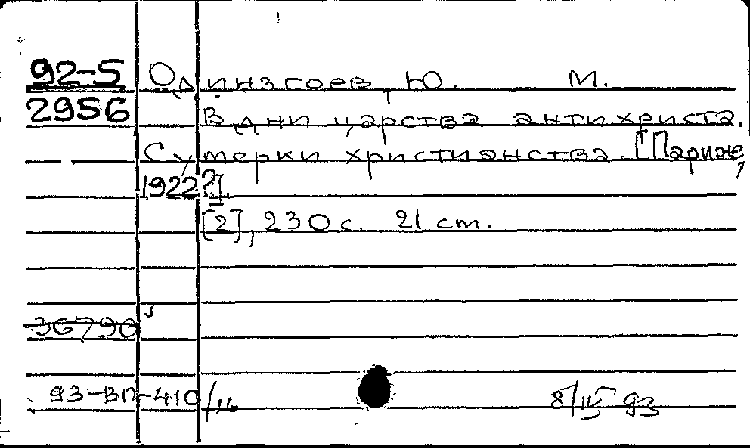 92-5 Одинзгоев, Ю. М.
2956 В дни царства антихриста.
Сумерки христианства. [Париж,
1922?]
[2], 230 с. 21 cm.
36790
93-ВП-410/16
8/IV 93